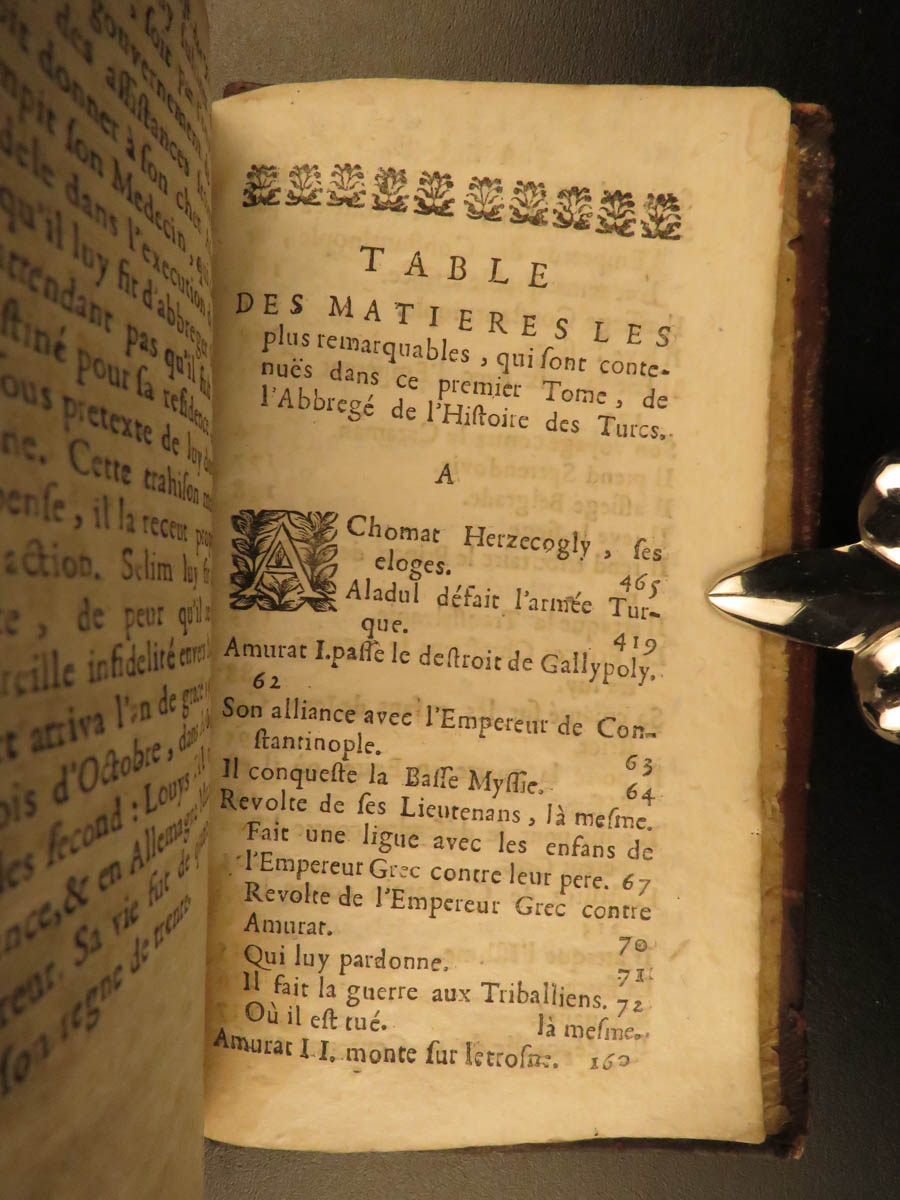 gouvernement
des assistances
donner à son cher
son Medecin, qui
dele dans l'execution
qu'il luy fit d'abbreger
attendant pas qu'il fust
stiné pour sa residence
sous pretexte de luy
ne. Cette trahison
pense, il la receut
action. Selim luy fit
te, de peur qu'il
reille infidelité envers
arriva l'an de grace
ois d'Octobre, dans
les second: Louys
ance, & en Allemagne
reur. Sa vie fut de
son regne de trente
TABLE
DES MATIERES LES
plus remarquables, qui sont conte-
nuës dans ce premier Tome, de
l'Abbregé de l'Histoire des Turcs.
A
AChomat Herzecogly, ses
eloges. 465
Aladul défait l'armée Tur-
que. 419
Amurat I. passe le destroit de Gallypoly.
62
Son alliance avec l'Empereur de Con-
stantinople. 63
Il conqueste la Basse Myssie. 64
Revolte de ses Lieutenans, là mesme.
Fait une ligue avec les enfans de
l'Empereur Grec contre leur pere. 67
Revolte de l'Empereur Grec contre
Amurat. 70
Qui luy pardonne. 71
Il fait la guerre aux Triballiens. 72
Où il est tué. là mesme.
Amurat II. monte sur letrosne. 160